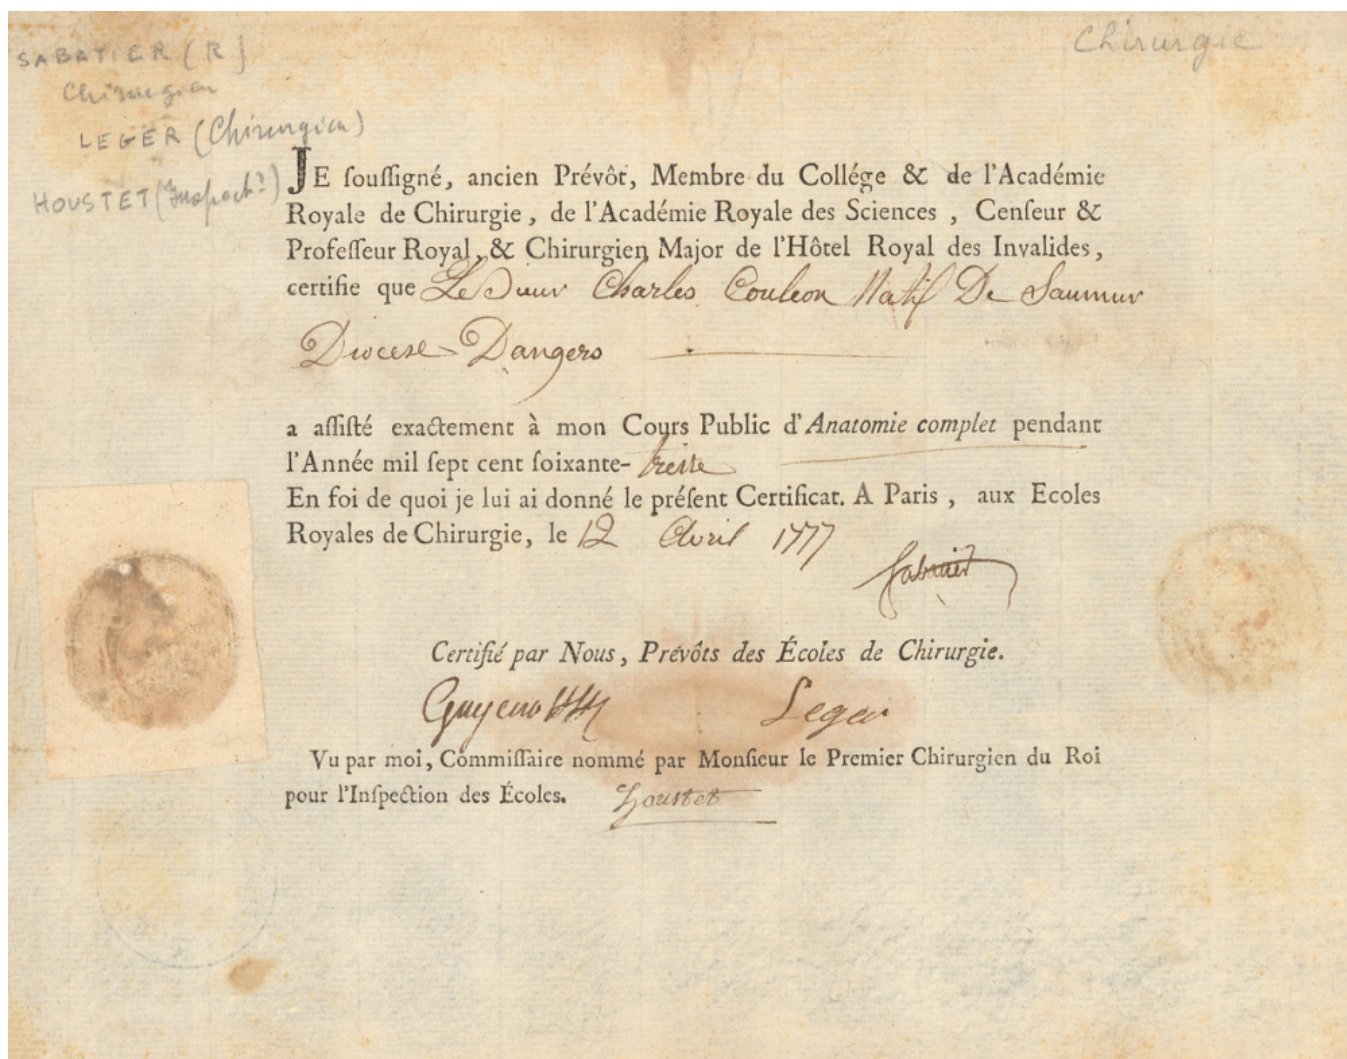 Chirurgie
SABATIER (R)
Chirurgien
LEGER (Chirurgien)
HOUSTET (Inspect?)
JE souſſigné, ancien Prévôt, Membre du Collége & de l'Académie
Royale de Chirurgie, de l'Académie Royale des Sciences, Cenſeur &
Profeſſeur Royal, & Chirurgien Major de l'Hôtel Royal des Invalides,
certifie que Le Sieur Charles Couleon Natif De Saumur
Diocese Dangers
a aſſiſté exactement à mon Cours Public d'Anatomie complet pendant
l'Année mil ſept cent ſoixante-treize
En foi de quoi je lui ai donné le préſent Certificat. A Paris, aux Ecoles
Royales de Chirurgie, le 12 Avril 1777
Sabatier
Certifié par Nous, Prévôts des Écoles de Chirurgie.
Leger
Vu par moi, Commiſſaire nommé par Monſieur le Premier Chirurgien du Roi
pour l'Inſpection des Écoles. Houstet